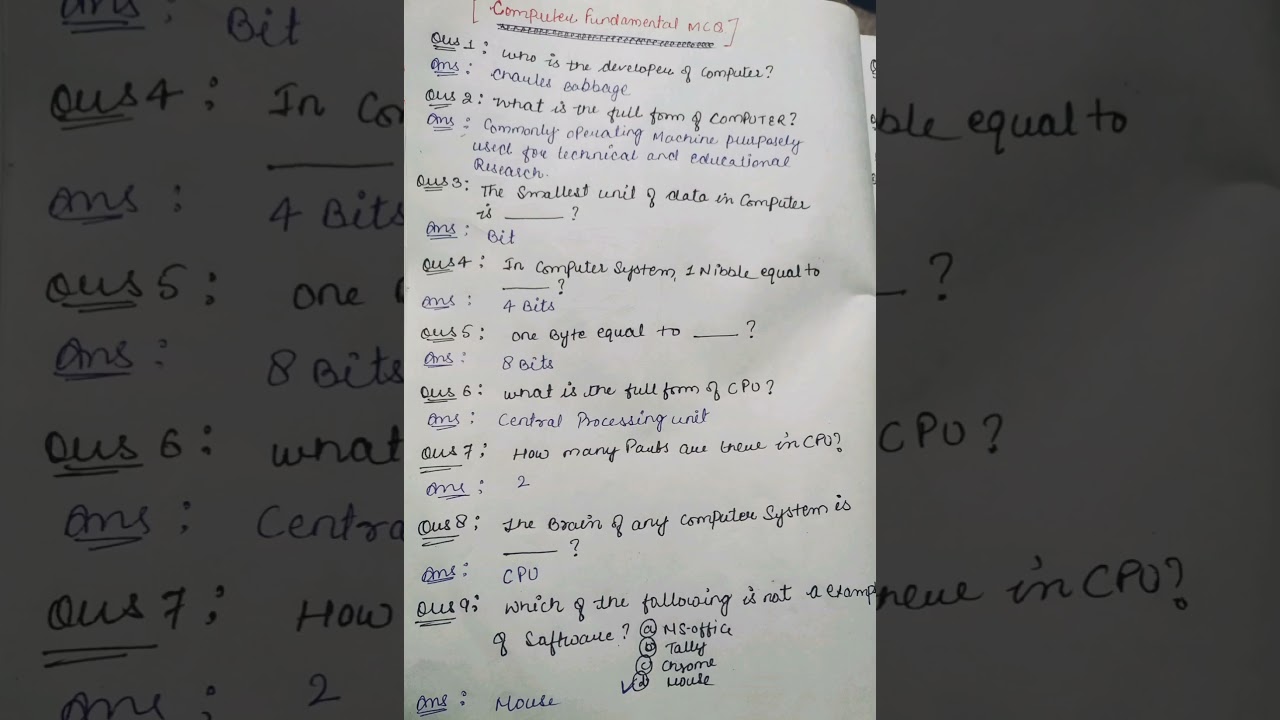 [ Computer Fundamental MCQ ]
Ques 1 : Who is the developer of Computer?
Ans : Charles Babbage
Ques 2 : What is the full form of COMPUTER?
Ans : Commonly operating Machine purposely
used for technical and educational
Research.
Ques 3 : The Smallest unit of data in Computer
is ______ ?
Ans : Bit
Ques 4 : In Computer System, 1 Nibble equal to
______ ?
Ans : 4 Bits
Ques 5 : one Byte equal to ____ ?
Ans : 8 Bits
Ques 6 : what is the full form of CPU?
Ans : Central Processing unit
Ques 7 : How many Parts are there in CPU?
Ans : 2
Ques 8 : The Brain of any Computer System is
______ ?
Ans : CPU
Ques 9 : which of the following is not a examp
of Software? (a) MS-office
(b) Tally
(c) Chrome
(d) Mouse
Ans : Mouse